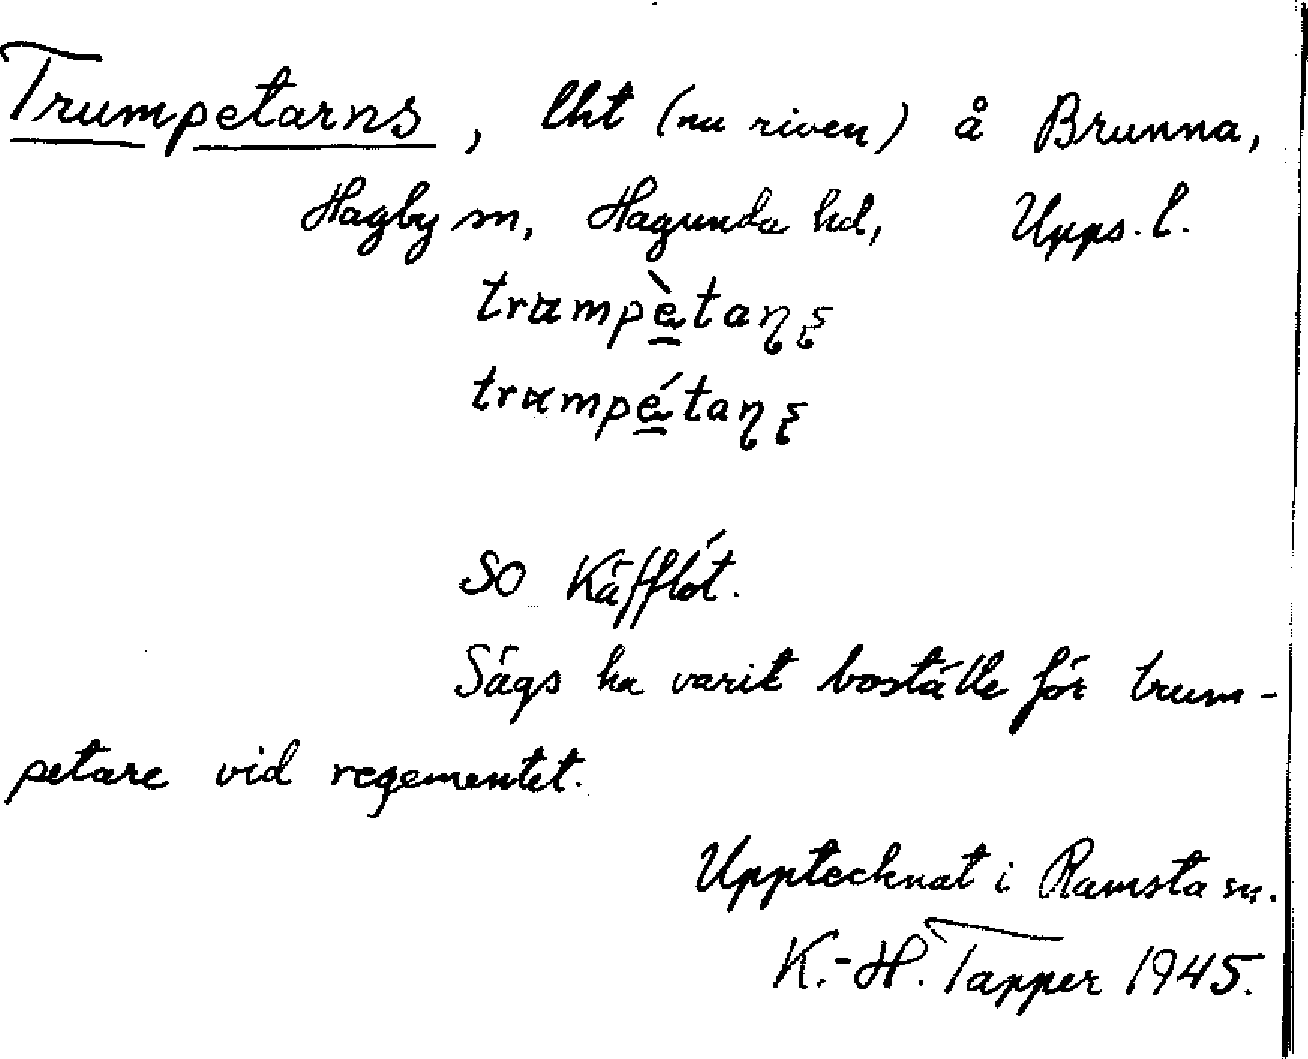 Trumpetarns, lht (nu riven) å Brunna,
Hagby sn, Hagunda hd, Upps. l.
trumpètaɳʂ
trumpétaɳʂ
SO Käfflót.
Sägs ha varit boställe för trum-
petare vid regementet.
Upptecknat i Ramsta sn.
K.-H. Tapper 1945.